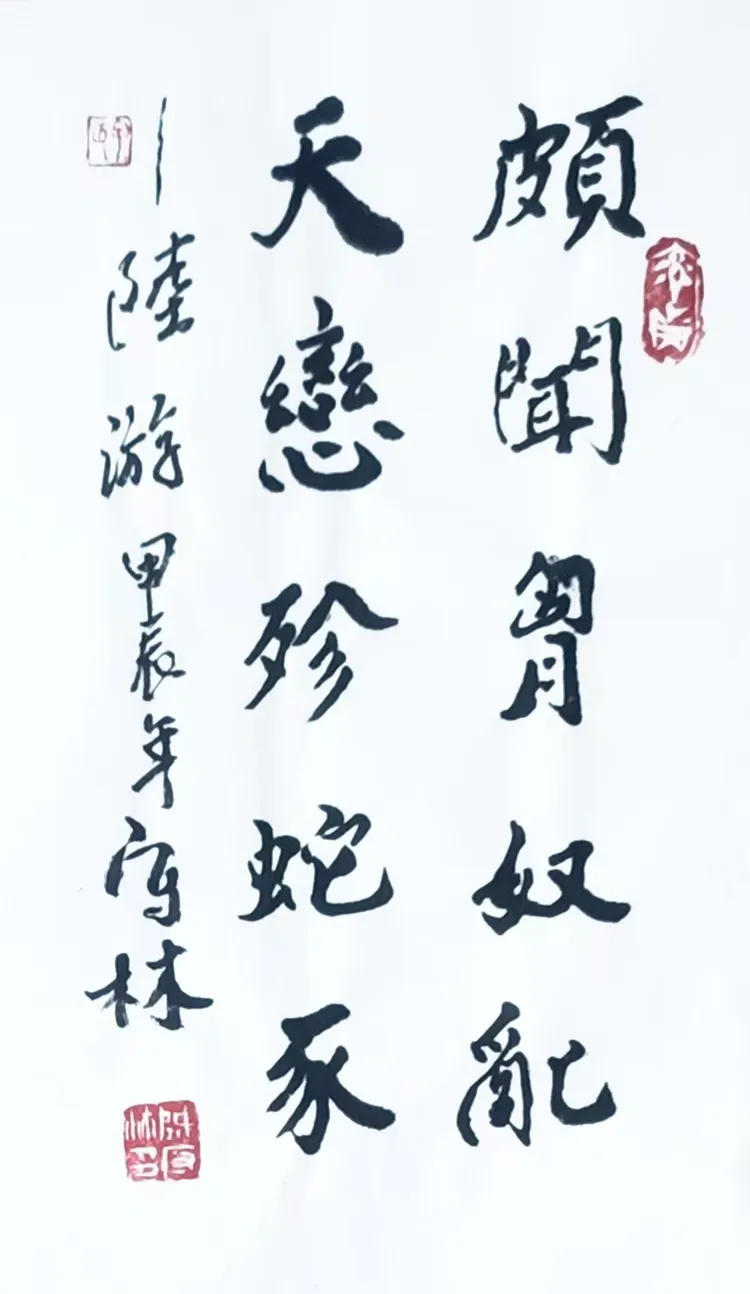 頗聞胷奴亂
天戀殄蛇豕
—陸游 甲辰年厚林